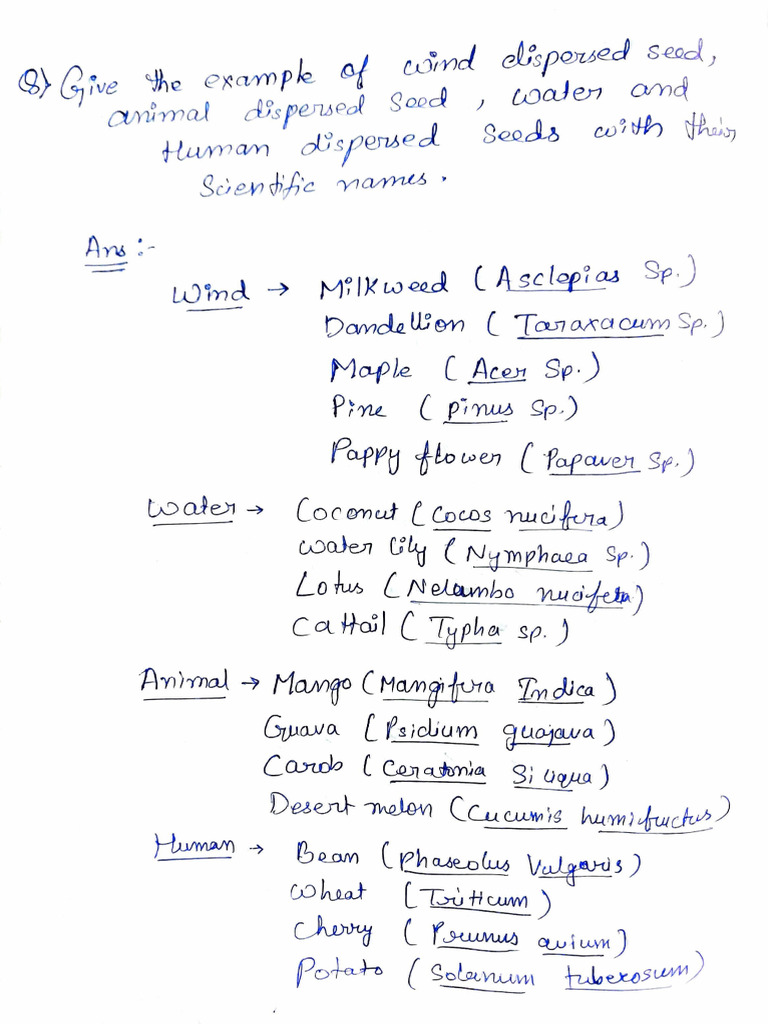 Q) Give the example of wind dispersed seed,
animal dispersed seed, water and
Human dispersed seeds with their
Scientific names.
Ans :-
Wind → Milkweed (Asclepias Sp.)
Dandellion (Taraxacum Sp.)
Maple (Acer Sp.)
Pine (pinus Sp.)
Pappy flower (Papaver Sp.)
Water → Coconut (Cocos nucifera)
Water lily (Nymphaea Sp.)
Lotus (Nelambo nucifera)
Cattail (Typha sp.)
Animal → Mango (Mangifera Indica)
Guava (Psidium guajava)
Carob (Ceratonia Siliqua)
Desert melon (Cucumis humifructus)
Human → Bean (Phaseolus Vulgaris)
Wheat (Triticum)
Cherry (Prunus avium)
Potato (Solanum tuberosum)